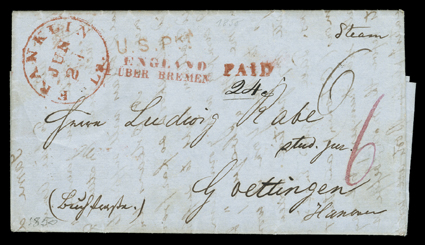 Steam
FRANKLIN
JUN
2
U.S. Pkt
ENGLAND
ÜBER BREMEN
PAID
24
6
Herrn Ludwig Rabe
stud. jur.
6
Goettingen
Hanover